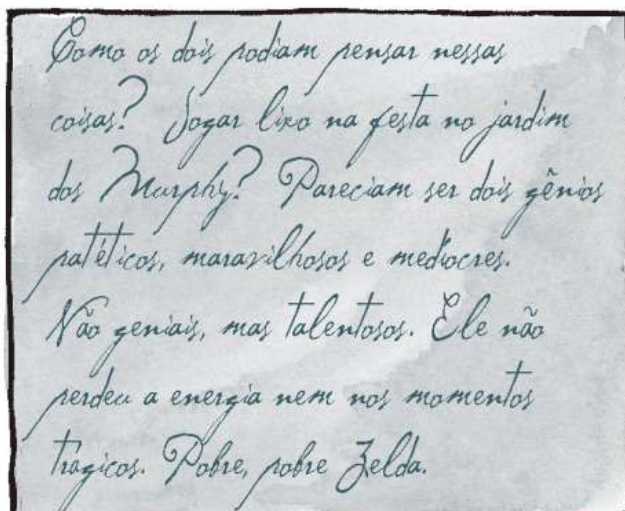 Como os dois podiam pensar nessas
coisas? Jogar lixo na festa no jardim
dos Murphy? Pareciam ser dois gênios
patéticos, maravilhosos e medíocres.
Não geniais, mas talentosos. Ele não
perdeu a energia nem nos momentos
trágicos. Pobre, pobre Zelda.